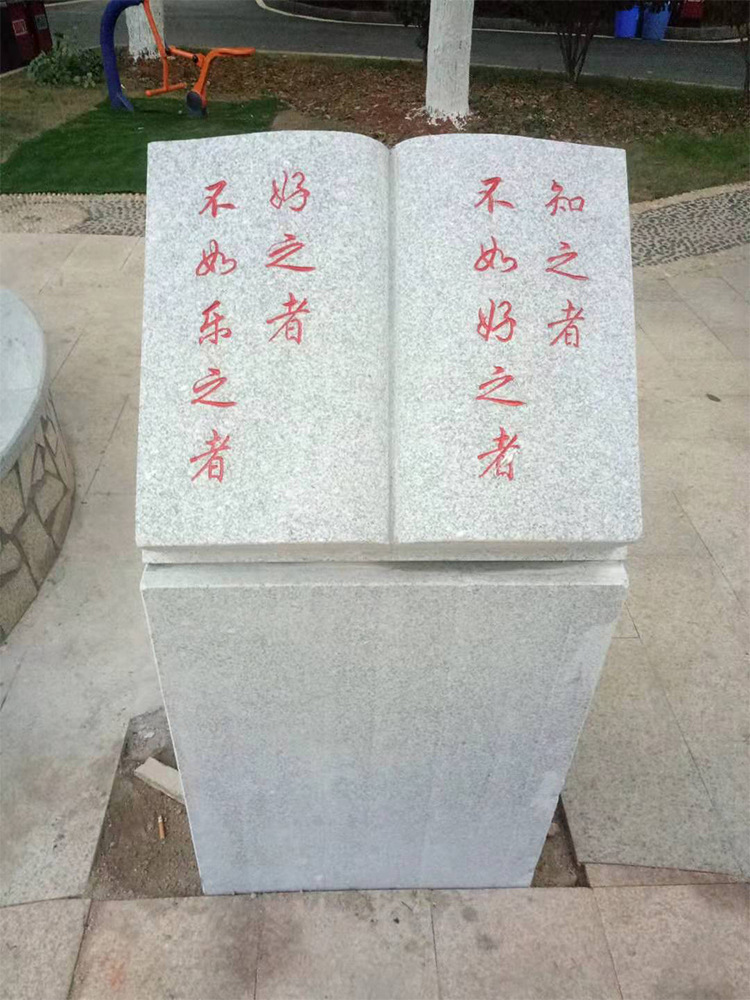 知之者
不如好之者
好之者
不如乐之者